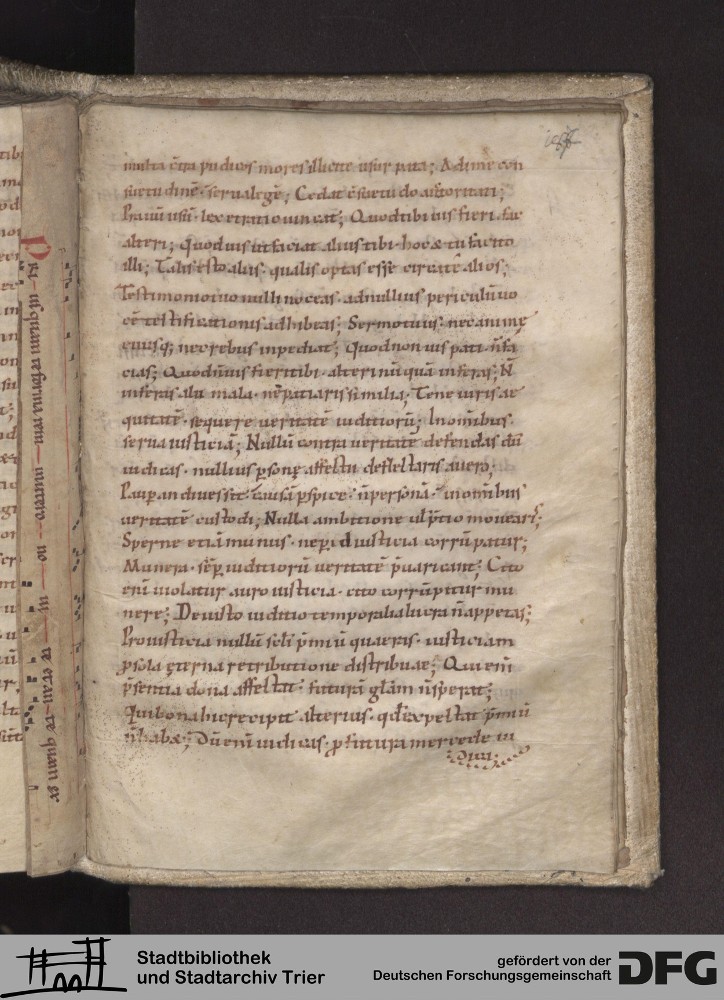 multa c̄tra pudicos mores illicite usurpata; Adime con
suetudinē· serua legē; Cedat c̄suetudo auctoritati;
Prauū usū· lex et ratio uincat; Quod tibi uis fieri· fac
alteri; quod uis ut faciat alius tibi· hoc & tu facito
illi; Talis esto aliis· qualis optas esse circa te alios;
Testimonio tuo nulli noceas· ad nullius periculū uo
cē testificationis adhibeas; Sermo tuus· nec animę
cuiusq; nec rebus inpediat; Quod non uis pati· n̄ fa
cias; Quod n̄ uis fieri tibi· alteri nūquā inferas; N̄
inferas alii mala· ne patiaris similia; Tene iuris ae
quitatē· sequere ueritatē iuditiorū; In omībus·
serua iusticiā; Nullū contra ueritatē defendas dū
iudicas· nullius psonę affectu deflectaris a uero;
Pauper an diues sit· causā pspice· n̄ personā· in omībus
ueritatē custodi; Nulla ambitione ul p̄tio mouearis;
Sperne etiā munus· ne p id iusticia corrūpatur;
Munera· sēp iuditiorū ueritatē p̄uaricant; Cito
enī uiolatur auro iusticia· cito corrūpitur mu
nere; De iusto iuditio temporalia lucra n̄ appetas;
Pro iusticia nullū scli p̄miū quaeris· iusticiam
p sola ęterna retributione distribuae; Qui enī
p̄sentia dona affectat· futurā glām n̄ sperat;
Qui bona hic recipit alterius· qd expectat p̄miū
n̄ hab&; Dū enī iudicas· p futura mercede iu
dica;
Stadtbibliothek
und Stadtarchiv Trier
gefördert von der
Deutschen Forschungsgemeinschaft
DFG